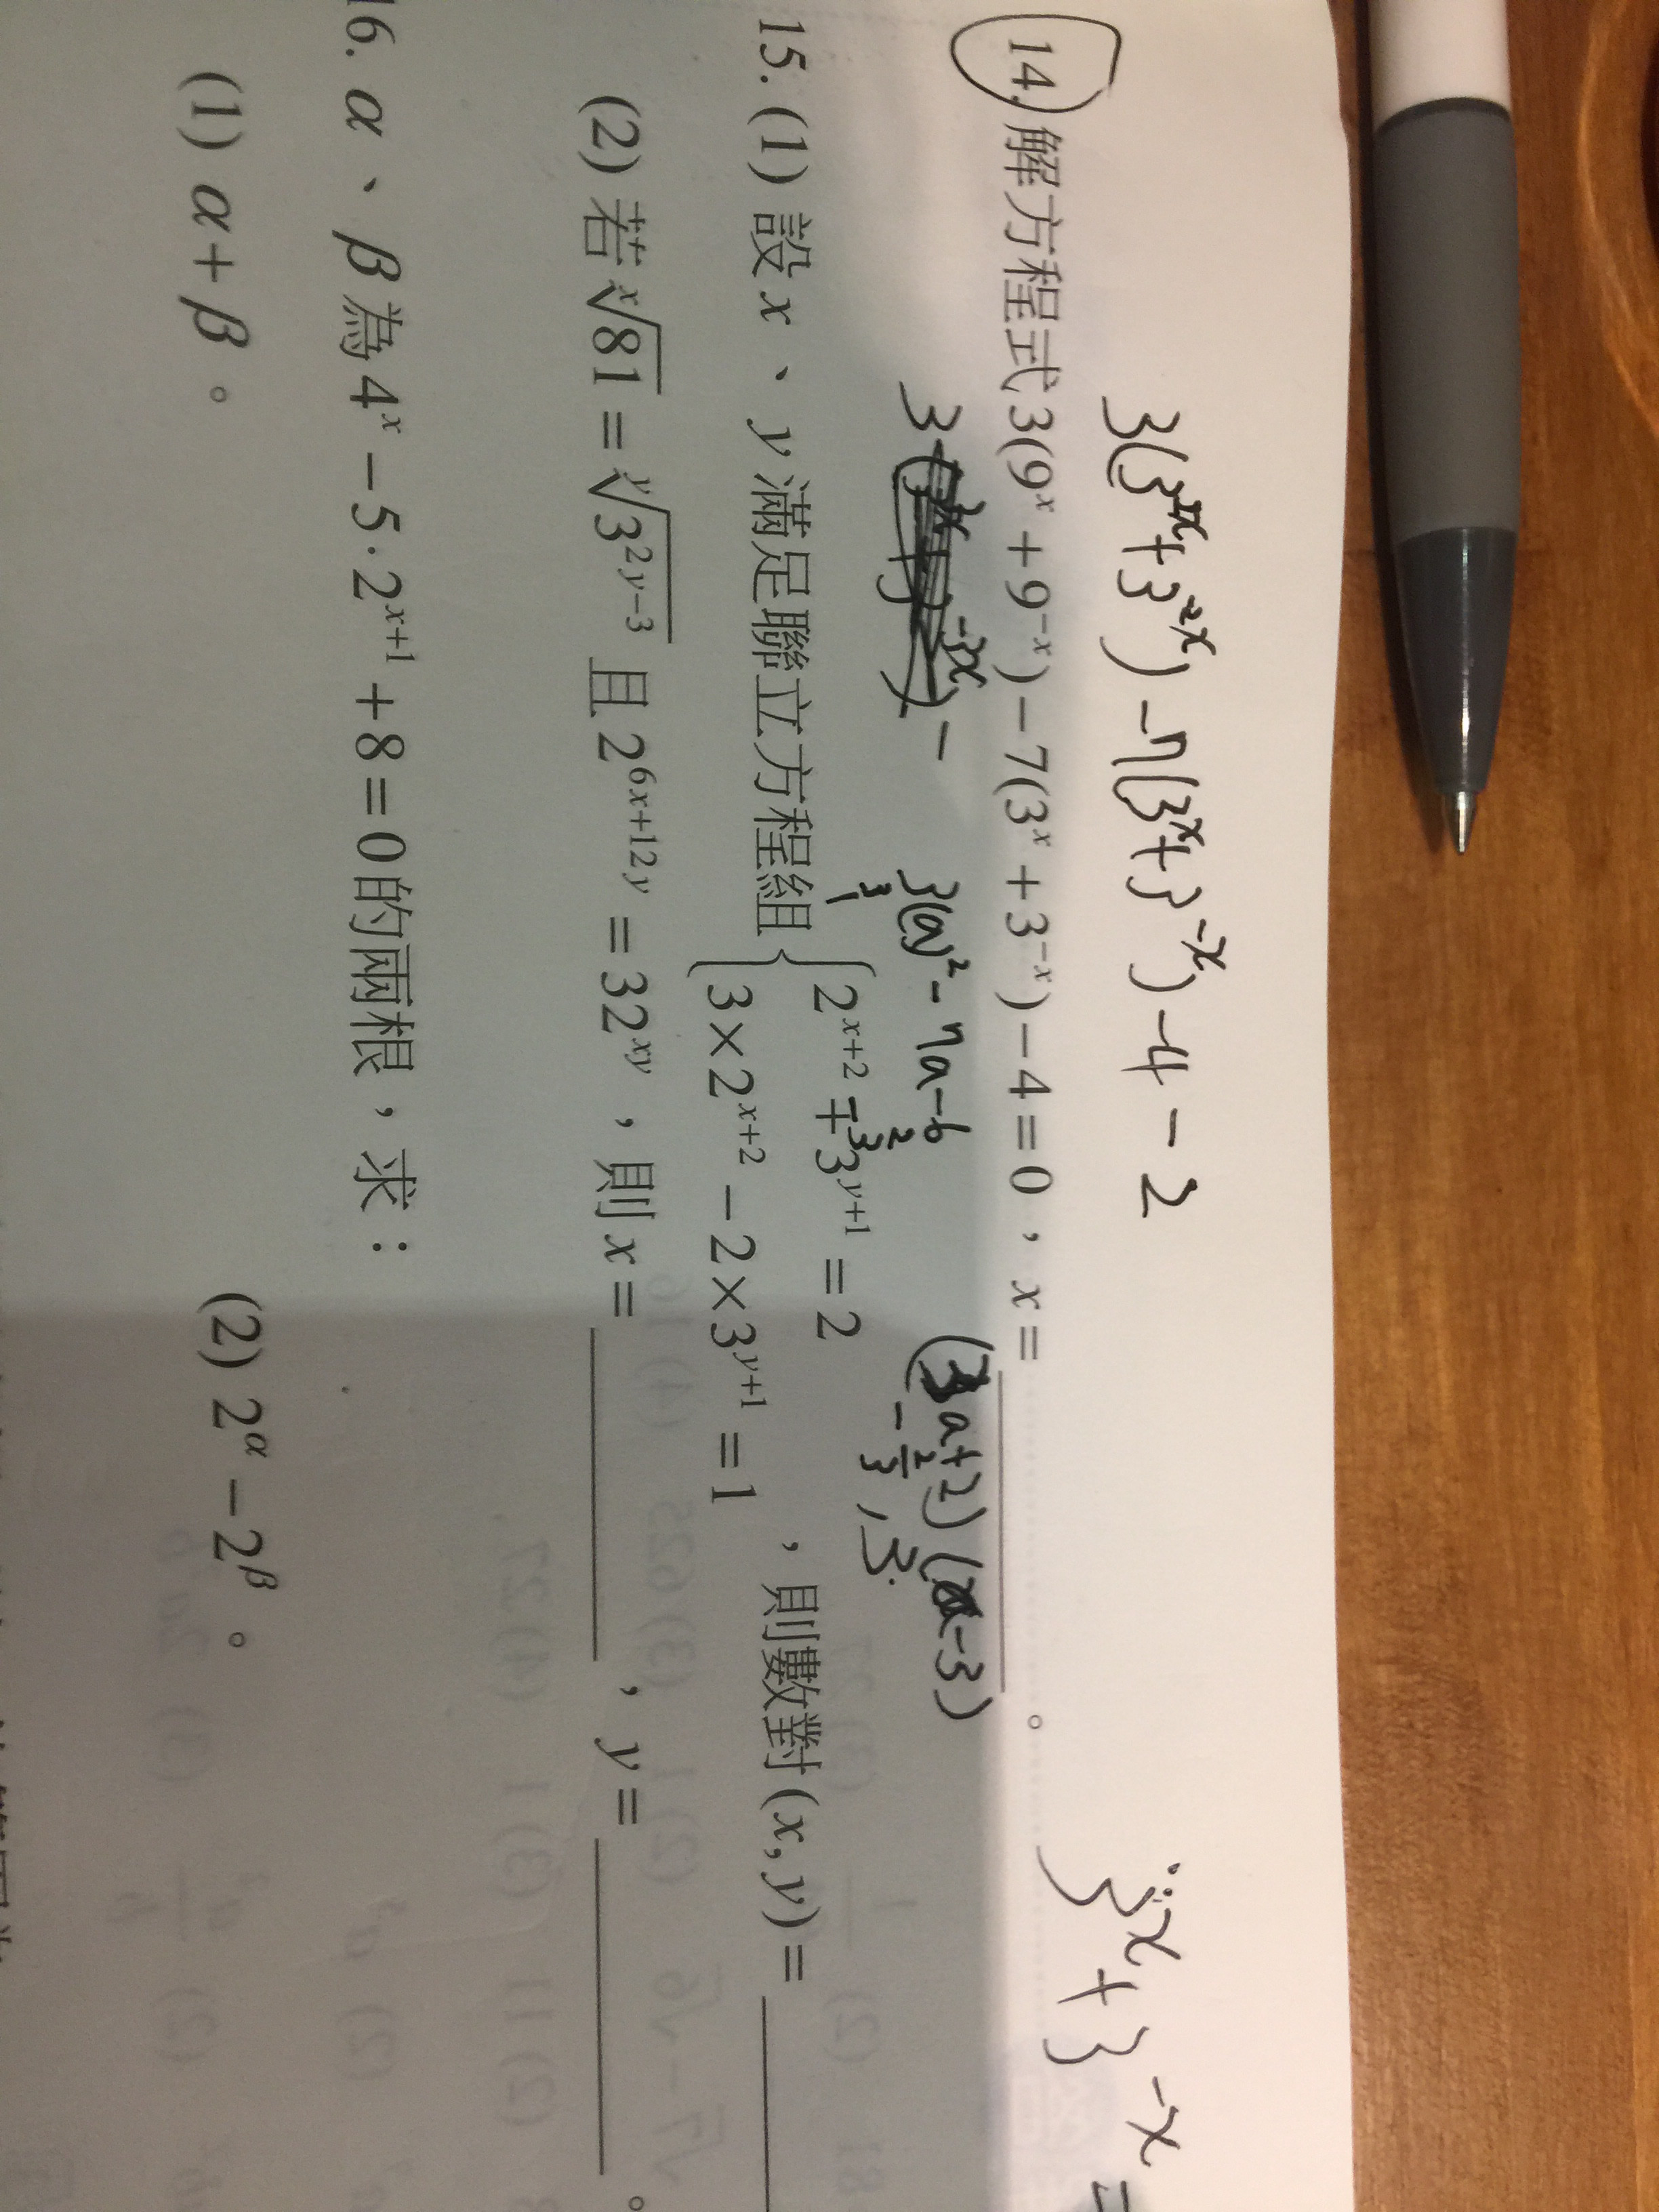 3(3²ˣ+3⁻²ˣ)-7(3ˣ+3⁻ˣ)-4-2
14. 解方程式3(9ˣ+9⁻ˣ)-7(3ˣ+3⁻ˣ)-4=0,x= 。
3ˣ+3⁻ˣ=
3(a)²-7a-6
3 2
1 -3
(3a+2)(a-3)
-2/3 , 3.
15. (1) 設x、y滿足聯立方程組{2ˣ⁺²+3ʸ⁺¹=2
3×2ˣ⁺²-2×3ʸ⁺¹=1 ,則數對(x,y)=
(2) 若ˣ√81=ʸ√3²ʸ⁻³且2⁶ˣ⁺¹²ʸ=32ˣʸ,則x= ,y= 。
16. α、β為4ˣ-5·2ˣ⁺¹+8=0的兩根,求:
(1) α+β。 (2) 2^α-2^β。